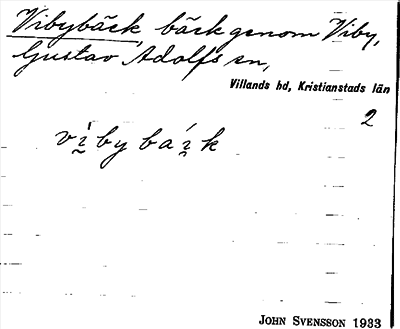 Vibybäck, bäck genom Viby,
Gustav Adolfs sn,
Villands hd, Kristianstads län
2
vì̯bybái̯k
JOHN SVENSSON 1933